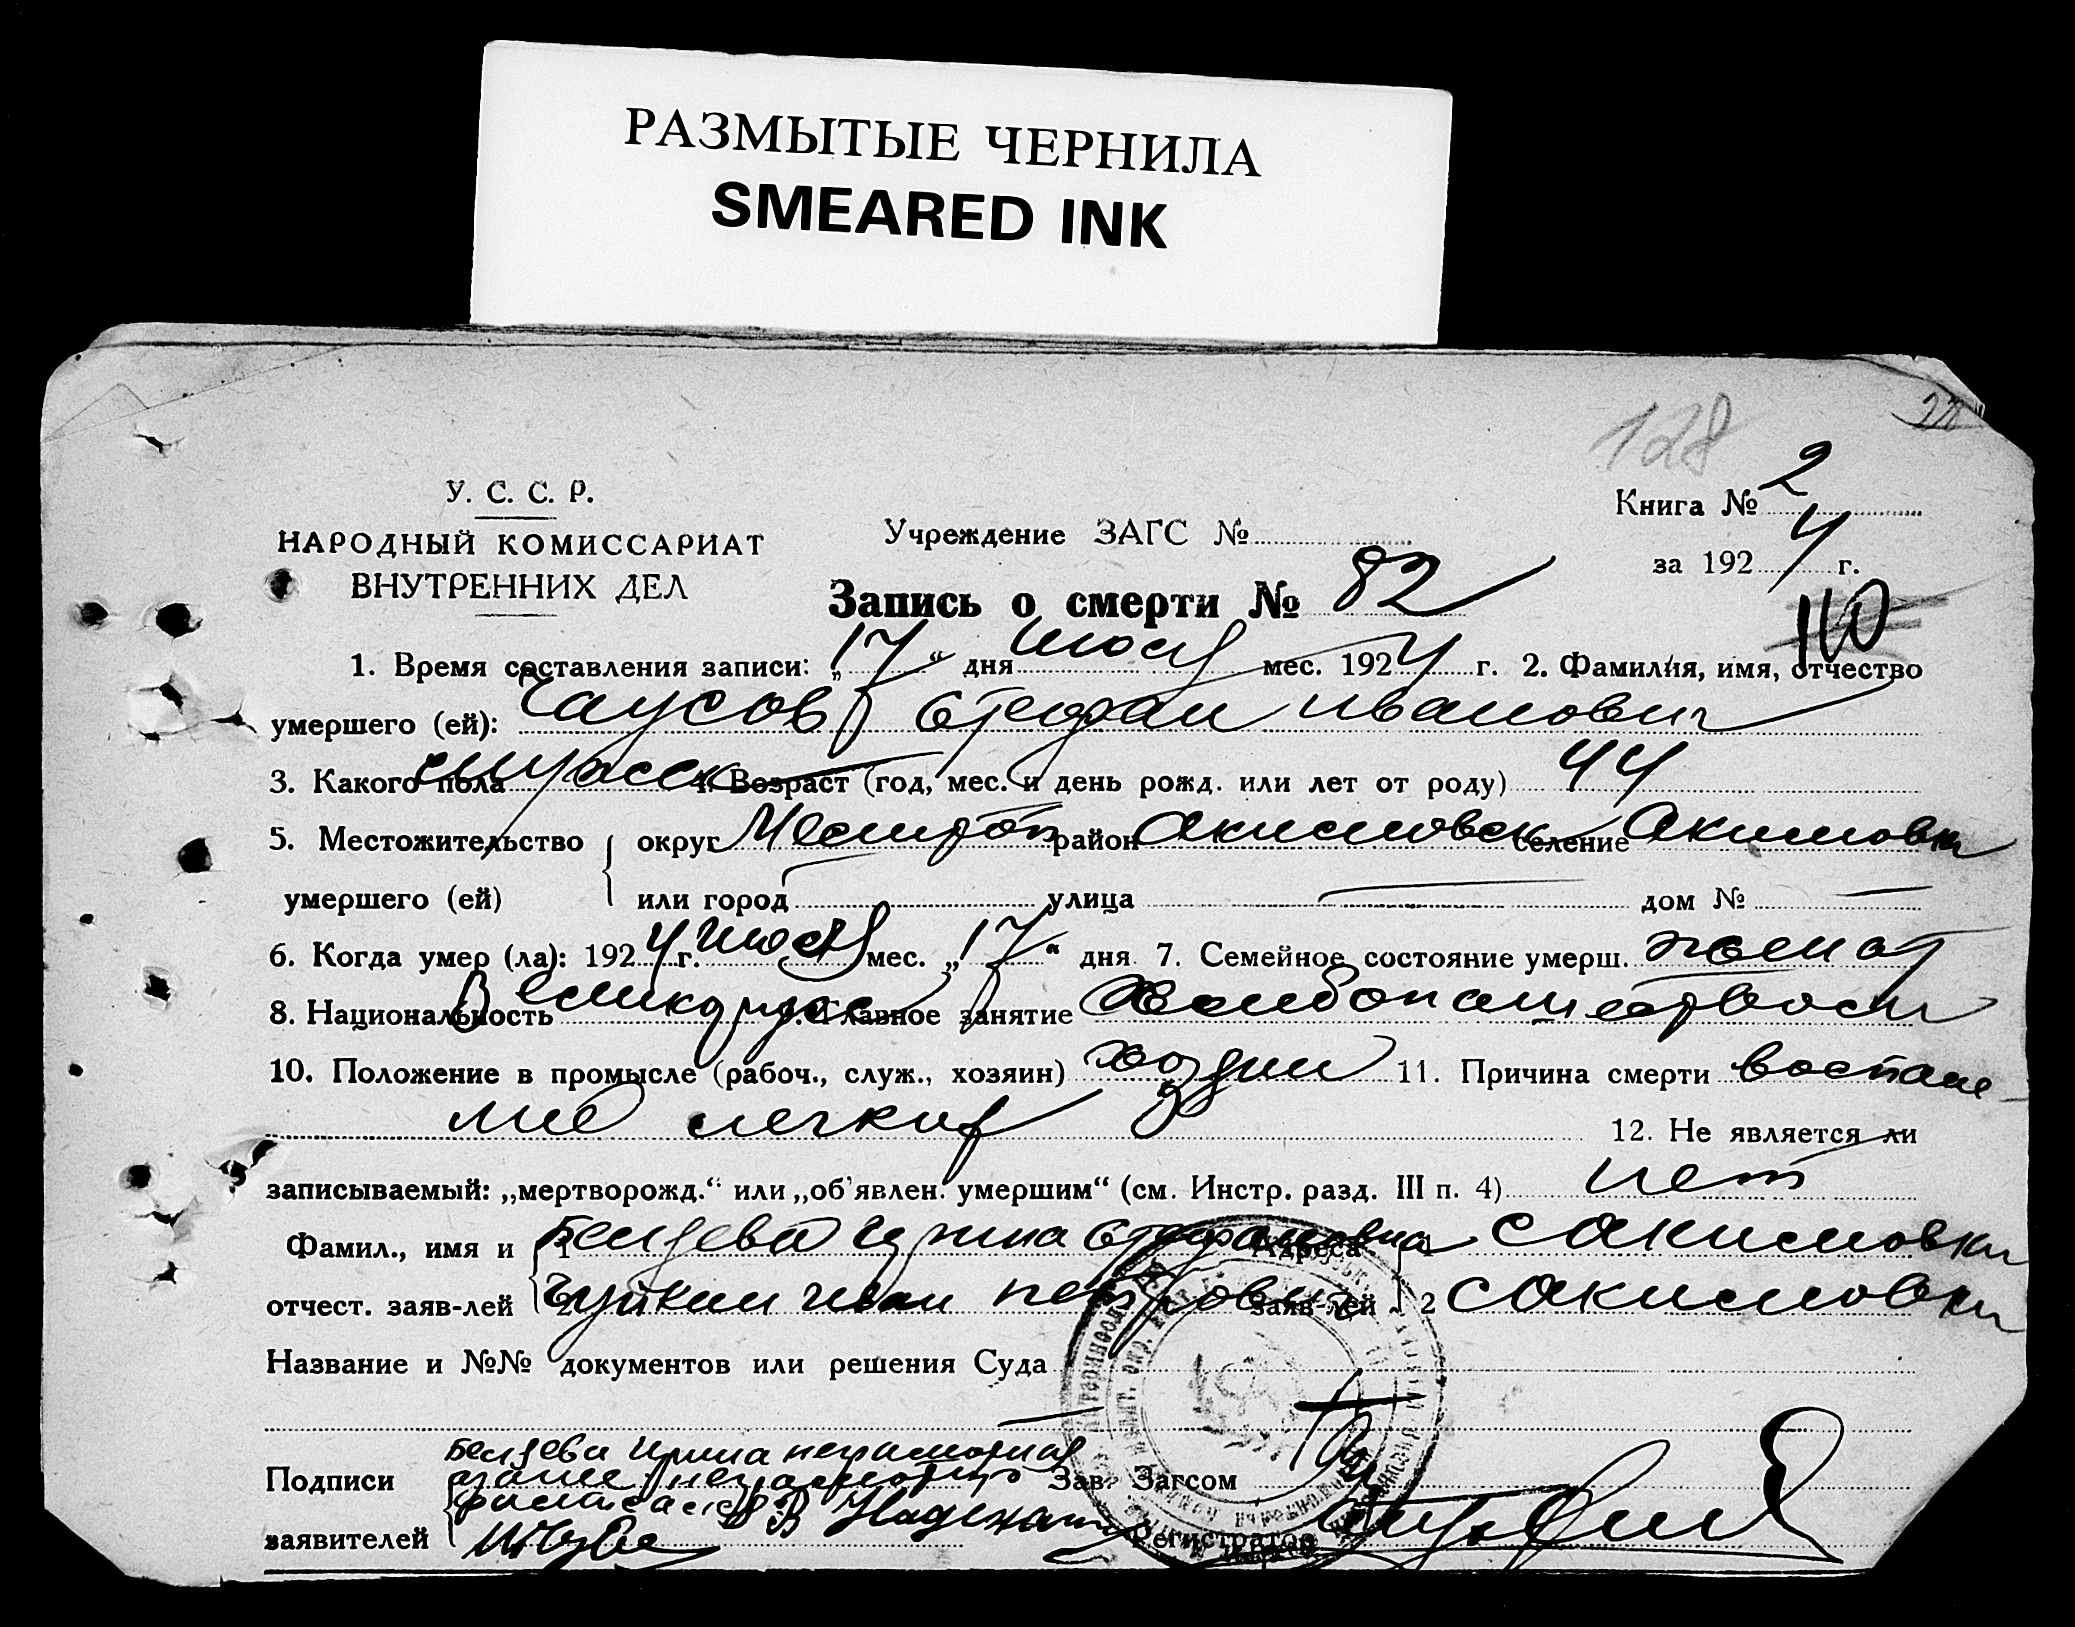 РАЗМЫТЫЕ ЧЕРНИЛА
SMEARED INK
128
У. С. С. Р.
НАРОДНЫЙ КОМИССАРИАТ
ВНУТРЕННИХ ДЕЛ
Учреждение ЗАГС №
Книга № 2
за 1924 г.
Запись о смерти № 82
110
1. Время составления записи: „17“ дня мес. 1924 г. 2. Фамилия, имя, отчество
умершего (ей): Чаусов Стефан Иванович
3. Какого пола 4. Возраст (год, мес. и день рожд. или лет от роду) 44
5. Местожительство округ район Акимовск селение Акимовка
умершего (ей) или город улица дом №
6. Когда умер (ла): 1924 г. мес. „17“ дня 7. Семейное состояние умерш. женат
8. Национальность Великорус 9. Главное занятие
10. Положение в промысле (рабоч., служ., хозяин) хозяин 11. Причина смерти воспале
ние легких 12. Не является ли
записываемый: „мертворожд.“ или „об'явлен. умершим“ (см. Инстр. разд. III п. 4) нет
Фамил., имя и 1 Ирина Стефановна Адреса 1 с Акимовки
отчест. заяв-лей 2 Иван Петрович заяв-лей 2 с Акимовки
Название и №№ документов или решения Суда
Ирина неграмотная
Подписи Зав. Загсом
заявителей Регистратор